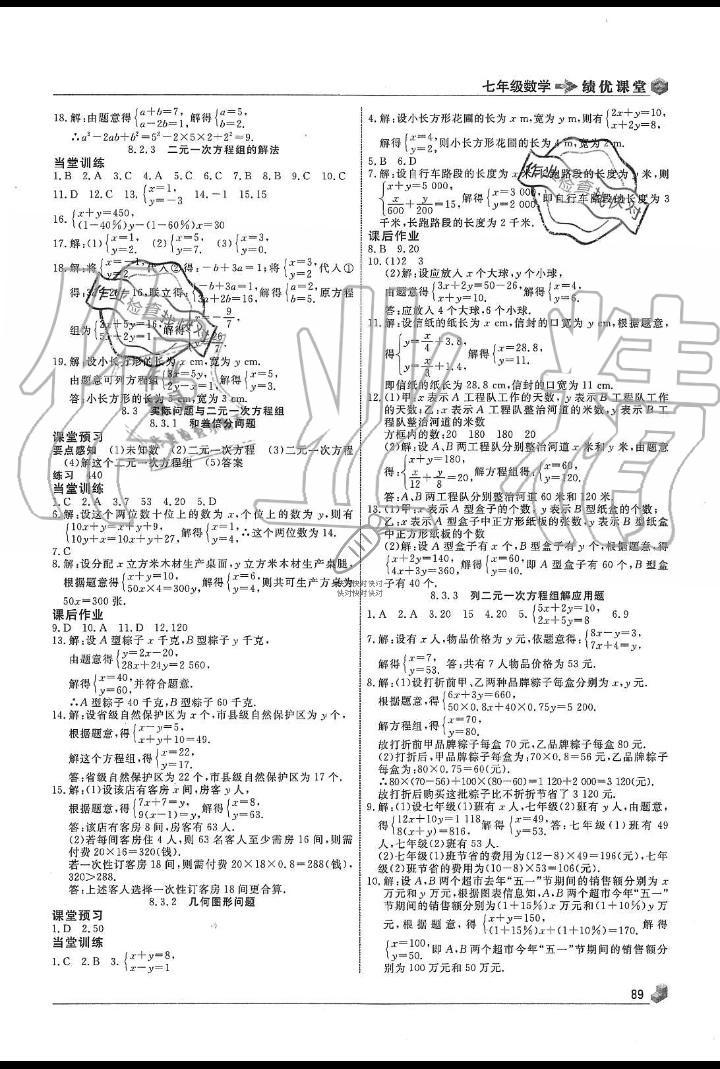 七年级数学 绩优课堂
18.解:由题意得{a+b=7, a-2b=1, 解得{a=5, b=2.
∴a²-2ab+b²=5²-2×5×2+2²=9.
8.2.3 二元一次方程组的解法
当堂训练
1.B 2.A 3.C 4.A 5.A 6.C 7.B 8.B 9.C 10.C
11.D 12.C 13.{x=1, y=-3 14.-1 15.15
16.{x+y=450, (1-40%)y-(1-60%)x=30
17.解:(1){x=1, y=2. (2){x=5, y=7. (3){x=3, y=0.
18.解:将 代入②得:-b+3a=1;将{x=3, y=2 代入①
得:3a+2b=16,联立得:{-b+3a=1, 3a+2b=16, 解得{a=2, b=5. 原方程
组为 解得
19.解:设小长方形的长为x cm,宽为y cm.
由题意可列方程组{3x=5y, 2y-x=1, 解得
答:小长方形的长为5 cm,宽为3 cm.
8.3 实际问题与二元一次方程组
8.3.1 和差倍分问题
课堂预习
要点感知 (1)未知数 (2)二元一次方程 (3)二元一次方程
(4)解这个二元一次方程组 (5)答案
练习 140
当堂训练
1.C 2.A 3.7 53 4.20 5.D
6.解:设这个两位数十位上的数为x,个位上的数为y,则有
{10x+y=x+y+9, 10y+x=10x+y+27, 解得{x=1, y=4, ∴这个两位数为14.
7.C
8.解:设分配x立方米木材生产桌面,y立方米木材生产桌腿,
根据题意得{x+y=10, 50x×4=300y, 解得{x=6, y=4, 则共可生产方桌为
50x=300张.
课后作业
9.D 10.A 11.D 12.120
13.解:设A型粽子x千克,B型粽子y千克,
由题意得{y=2x-20, 28x+24y=2 560,
解得{x=40, y=60, 并符合题意.
∴A型粽子40千克,B型粽子60千克.
14.解:设省级自然保护区为x个,市县级自然保护区为y个,
根据题意,得{x-y=5, x+y+10=49.
解这个方程组,得{x=22, y=17.
答:省级自然保护区为22个,市县级自然保护区为17个.
15.解:(1)设该店有客房x间,房客y人,
根据题意,得{7x+7=y, 9(x-1)=y, 解得{x=8, y=63.
答:该店有客房8间,房客有63人.
(2)若每间客房住4人,则63名客人至少需房16间,则需
付费20×16=320(钱),
若一次性订客房18间,则需付费20×18×0.8=288(钱),
320>288.
答:上述客人选择一次性订客房18间更合算.
8.3.2 几何图形问题
课堂预习
1.D 2.50
当堂训练
1.C 2.B 3.{x+y=8, x-y=1
4.解:设小长方形花圃的长为x m,宽为y m,则有{2x+y=10, x+2y=8,
解得{x=4, y=2, 则小长方形花圃的长为4 m,宽为2 m.
5.B 6.D
7.解:设自行车路段的长度为x米,长跑路段的长度为y米,则
{x+y=5 000, x/600+y/200=15, 解得{x=3 000, y=2 000, 即自行车路段的长度为3
千米,长跑路段的长度为2千米.
课后作业
8.B 9.20
10.(1)2 3
(2)解:设应放入x个大球,y个小球,
由题意得{3x+2y=50-26, x+y=10. 解得{x=4, y=6.
答:应放入4个大球,6个小球.
11.解:设信纸的纸长为x cm,信封的口宽为y cm,根据题意,
得{y=x/4+3.8, y=x/3+1.4, 解得{x=28.8, y=11.
即信纸的纸长为28.8 cm,信封的口宽为11 cm.
12.(1)甲:x表示A工程队工作的天数,y表示B工程队工作
的天数;乙:x表示A工程队整治河道的米数,y表示B工
程队整治河道的米数
方框内的数:20 180 180 20
(2)解:设A、B两工程队分别整治河道x米和y米,由题意
得:{x+y=180, x/12+y/8=20, 解方程组得:{x=60, y=120.
答:A、B两工程队分别整治河道60米和120米.
13.(1)甲:x表示A型盒子的个数,y表示B型纸盒的个数;
乙:x表示A型盒子中正方形纸板的张数,y表示B型纸盒
中正方形纸板的个数
(2)解:设A型盒子有x个,B型盒子有y个,根据题意,得
{x+2y=140, 解得{x=60, y=40. 即A型盒子有60个,B型盒
子有40个.
8.3.3 列二元一次方程组解应用题
1.A 2.A 3.20 15 4.20 5.{5x+2y=10, 2x+5y=8 6.9
7.解:设有x人,物品价格为y元,依题意得:{8x-y=3, 7x+4=y,
解得{x=7, y=53. 答:共有7人物品价格为53元.
8.解:(1)设打折前甲、乙两种品牌粽子每盒分别为x,y元.
根据题意,得{6x+3y=660, 50×0.8x+40×0.75y=5 200.
解方程组,得{x=70, y=80.
故打折前甲品牌粽子每盒70元,乙品牌粽子每盒80元.
(2)打折后,甲品牌粽子每盒为:70×0.8=56元,乙品牌粽子
每盒为:80×0.75=60(元).
∴80×(70-56)+100×(80-60)=1 120+2 000=3 120(元).
故打折后购买这批粽子比不折折节省了3 120元.
9.解:(1)设七年级(1)班有x人,七年级(2)班有y人,由题意,
得{12x+10y=1 118, 8(x+y)=816, 解得{x=49, y=53. 答:七年级(1)班有49
人,七年级(2)班有53人.
(2)七年级(1)班节省的费用为(12-8)×49=196(元),七年
级(2)班节省的费用为(10-8)×53=106(元).
10.解:设A,B两个超市去年“五一”节期间的销售额分别为x
万元和y万元,根据图表信息知,A,B两个超市今年“五一”
节期间的销售额分别为(1+15%)x万元和(1+10%)y万
元,根据题意,得{x+y=150, (1+15%)x+(1+10%)=170. 解得
{x=100, y=50. 即A,B两个超市今年“五一”节期间的销售额分
别为100万元和50万元.
89
作业精
作业检查找快对
快对快对快对
快对快对快对